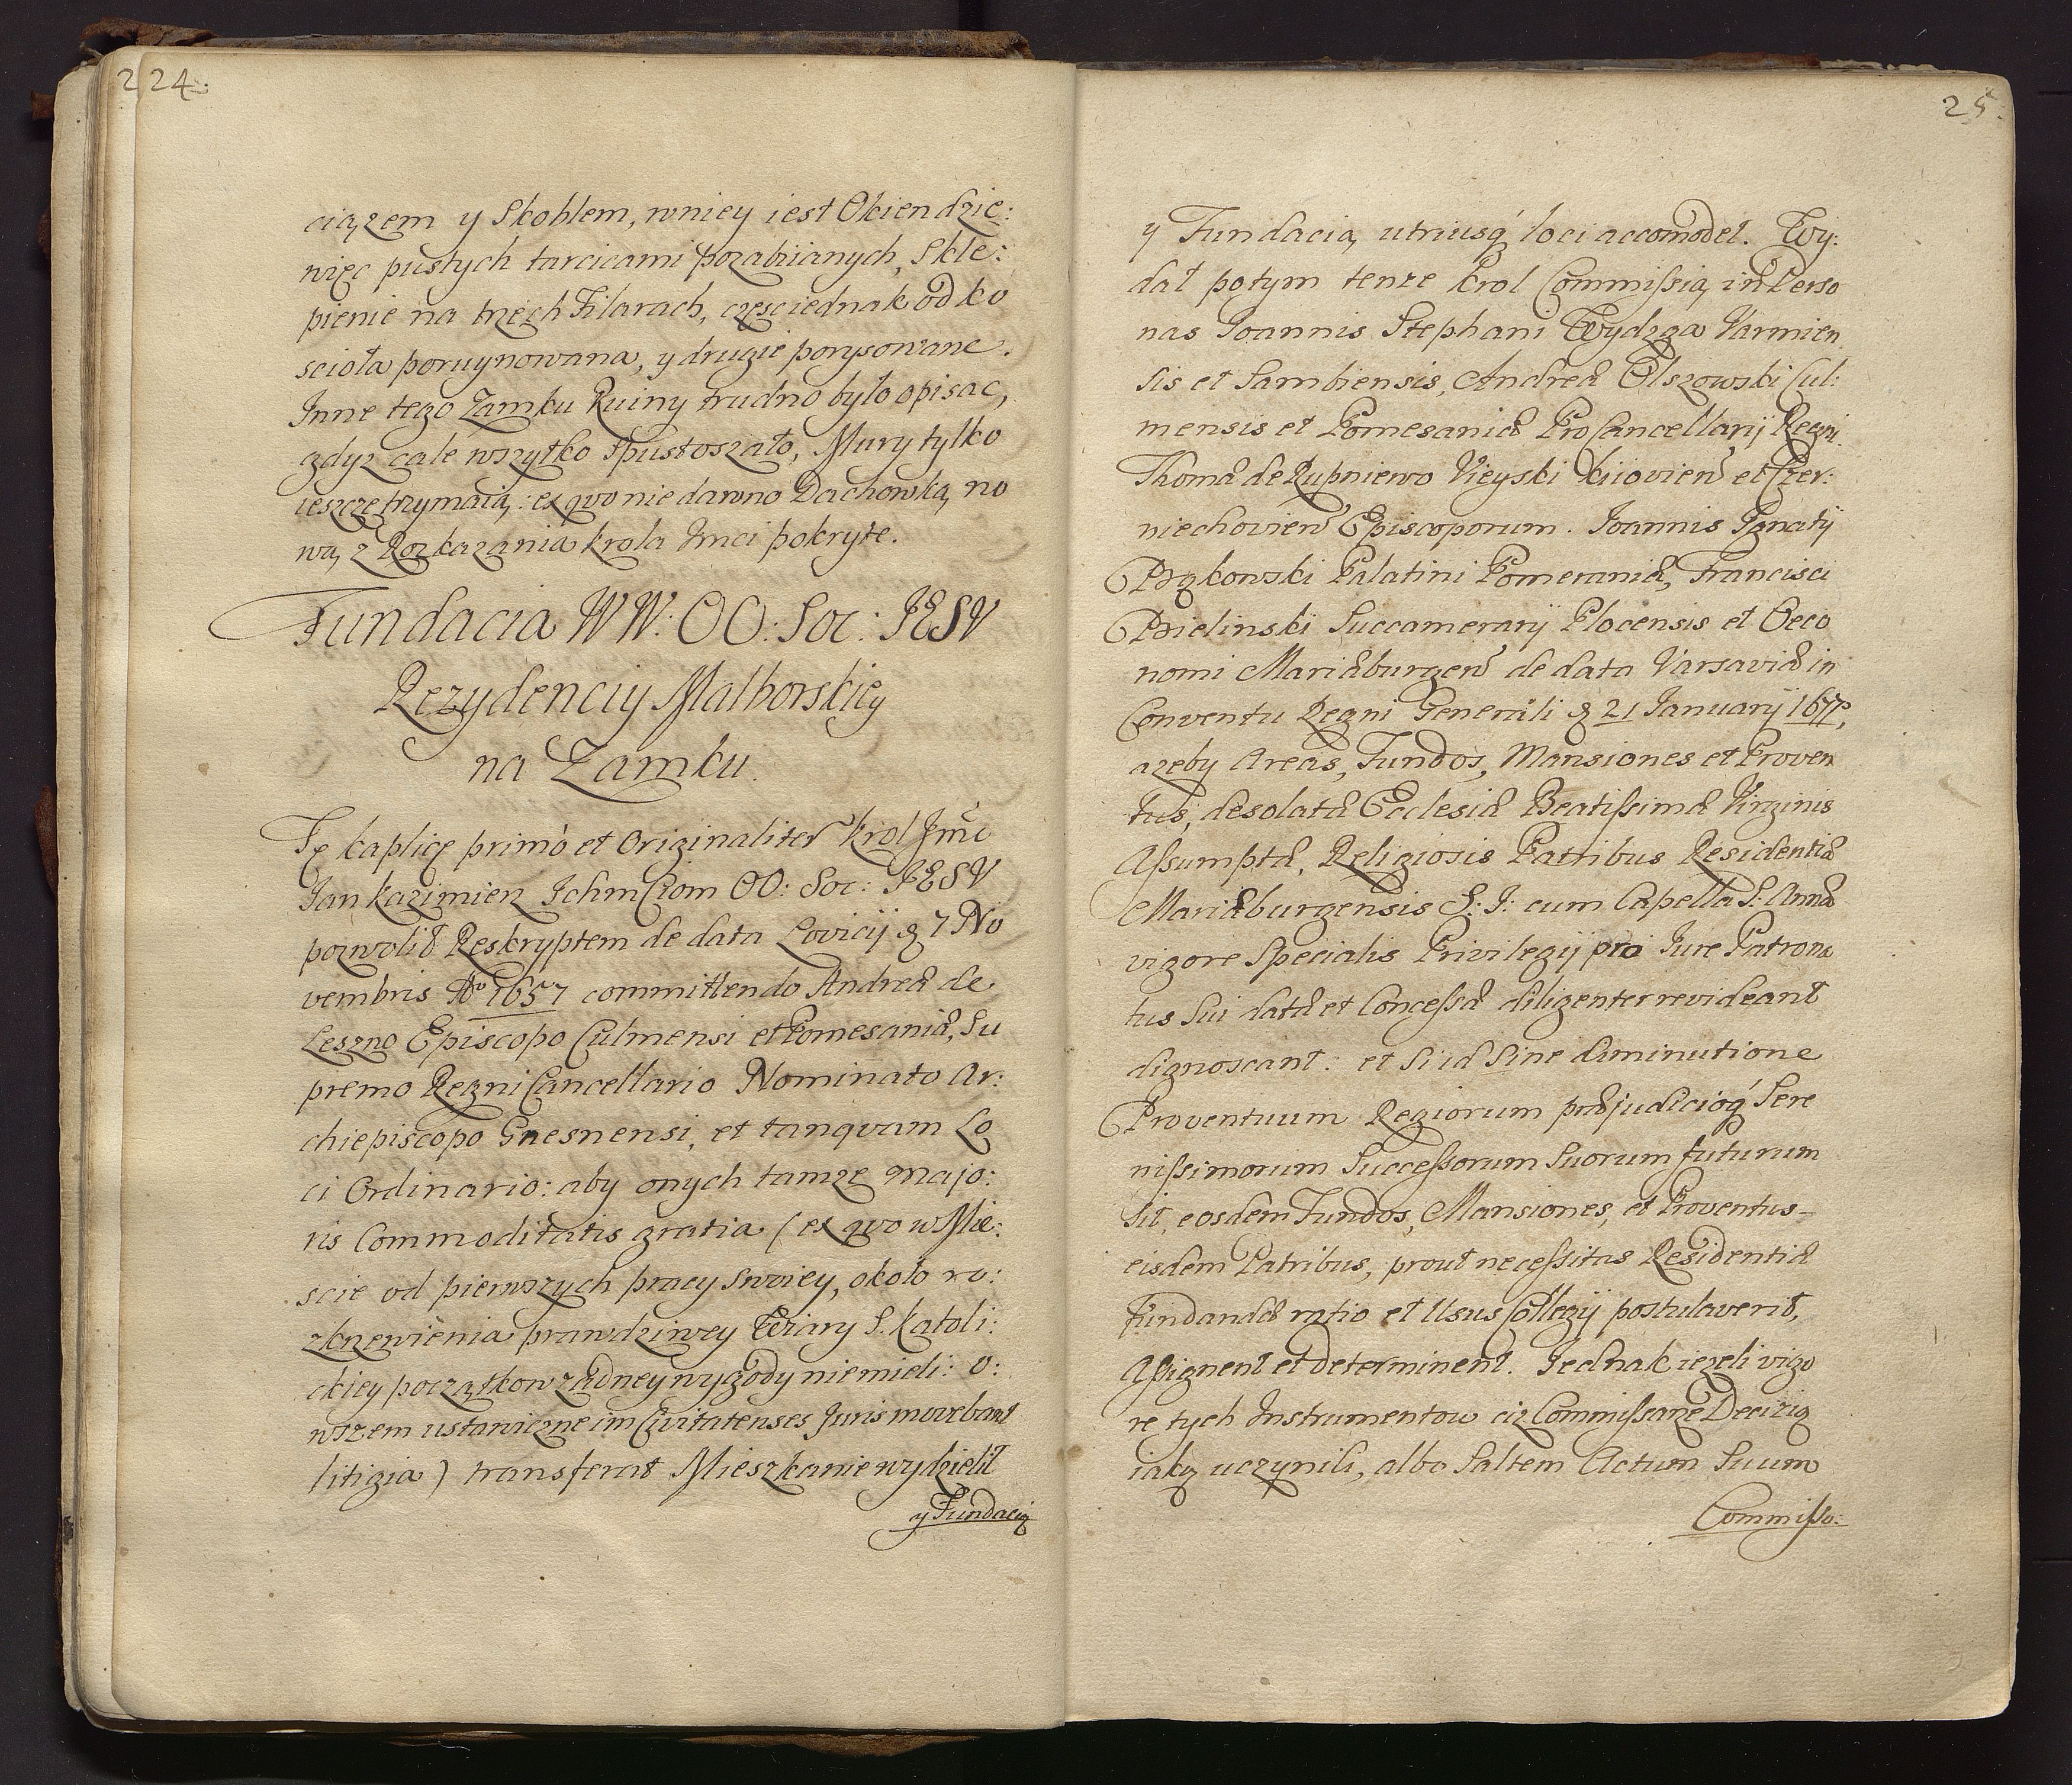 24.
ciązem y Skoblem, wniey iest Okien dzie:
więc pustych tarcicami pozabiianych, Skle:
pienie na trzech Filarach, częsc iednak od ko
sciola poruynowana, y drugie porysowane.
Inne tego Zamku Ruiny trudno było opisac,
gdyz cale wszytko spustoszało, Mury tylko
ieszcze trzymaią: ex quo nie dawno Dachowką no
wą z Rozkazania krola Jmci pokryte.
Fundacia WW: OO: Soc: JESV
Rezydenciy Malborskiey
na Zamku.
Tę kaplicę primo et Originaliter krol Jmć
Jan kazimierz Ichm Czom OO: Soc: JESV
pozwolił Reskryptem de data Lovicij d 7 No
vembris Ao 1657 committendo Andreæ de
Leszno Episcopo Culmensi et Pomesaniæ, Su
premo Regni Cancellario Nominato Ar:
chiepiscopo Gnesnensi, et tanquam Lo
ci Ordinario: aby onych tamze majo:
ris Commoditatis gratia (ex quo w Mie:
scie od pierwszych pracy swoiey, około ro:
zkrzewienia prawdziwey Wiary S. Katoli:
ckiey początkow zadney wygody niemieli: o:
wszem ustawiczne im Civitatenses Juris movebant
litigia) transferat Mieszkanie wydzielił
y Fundacią
25.
y Fundacią utriusq loci accomodet. Wy:
dał potym tenze krol Commissią in Perso
nas Joannis Stephani Wydzga Varmien
sis et Sambiensis, Andreæ Olszowski Cul:
mensis et Pomesaniæ ProCancellarij Regni.
Thomæ de Rupniewo Vieyski kiiovien et Czer:
niechovien Episcoporum. Joannis Ignatij
Bąkowski Palatini Pomeraniæ, Francisci
Bielinski Succamerarij Plocensis et Oeco
nomi Mariæburgen de data Varsaviæ in
Conventu Regni Generali d 21 January
azeby Areas, Fundos, Mansiones et Proven
tus, desolatæ Ecclesiæ Beatissimæ Virginis
Assumptæ, Religiosis Patribus Residentiæ
Mariæburgensis S: J: cum Capella S: Annæ
vigore Specialis Privilegij pro Jure Patrona
tus Sui datæ et Concessæ diligenter revideant
dignoscant: et si id sine diminutione
Proventuum Regiorum præjudicioq Sere
nissimorum Successorum Suorum futurum
sit, eosdem Fundos, Mansiones, et Proventus
eisdem Patribus, prout necessitas Residentiæ
Fundandæ ratio et Usus Collegij postulaverit,
Assignent et determinent. Jednak iezeli vigo
re tych Instrumentow ciz Commissarze Decizią
iaką uczynili, albo Saltem Actum Suum
Commisso: